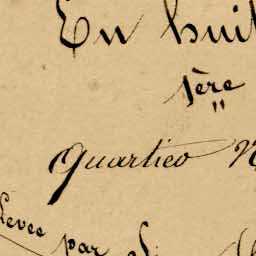 En huit
1ère
Quartier N
Levée par